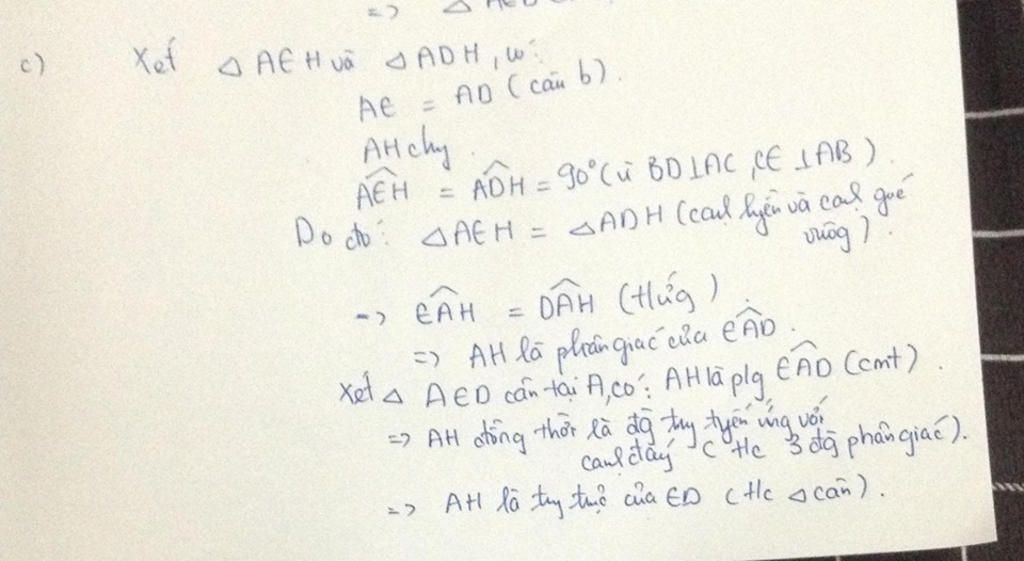 => △ AED
c) Xét △ AEH và △ ADH, có:
AE = AD (câu b).
AH chg.
AEH = ADH = 90° (vì BD ⊥ AC, CE ⊥ AB)
Do đó: △AEH = △ADH (cạnh huyền và cạnh góc
vuông).
-> EAH = DAH (t/ứng)
=> AH là phân giác của EAD.
Xét △ AED cân tại A, có: AH là p/g EAD (cmt).
=> AH đồng thời là đg tug tuyến ứng với
cạnh đáy (t/c 3 đg phân giác).
=> AH là tug trực của ED (t/c △ cân).